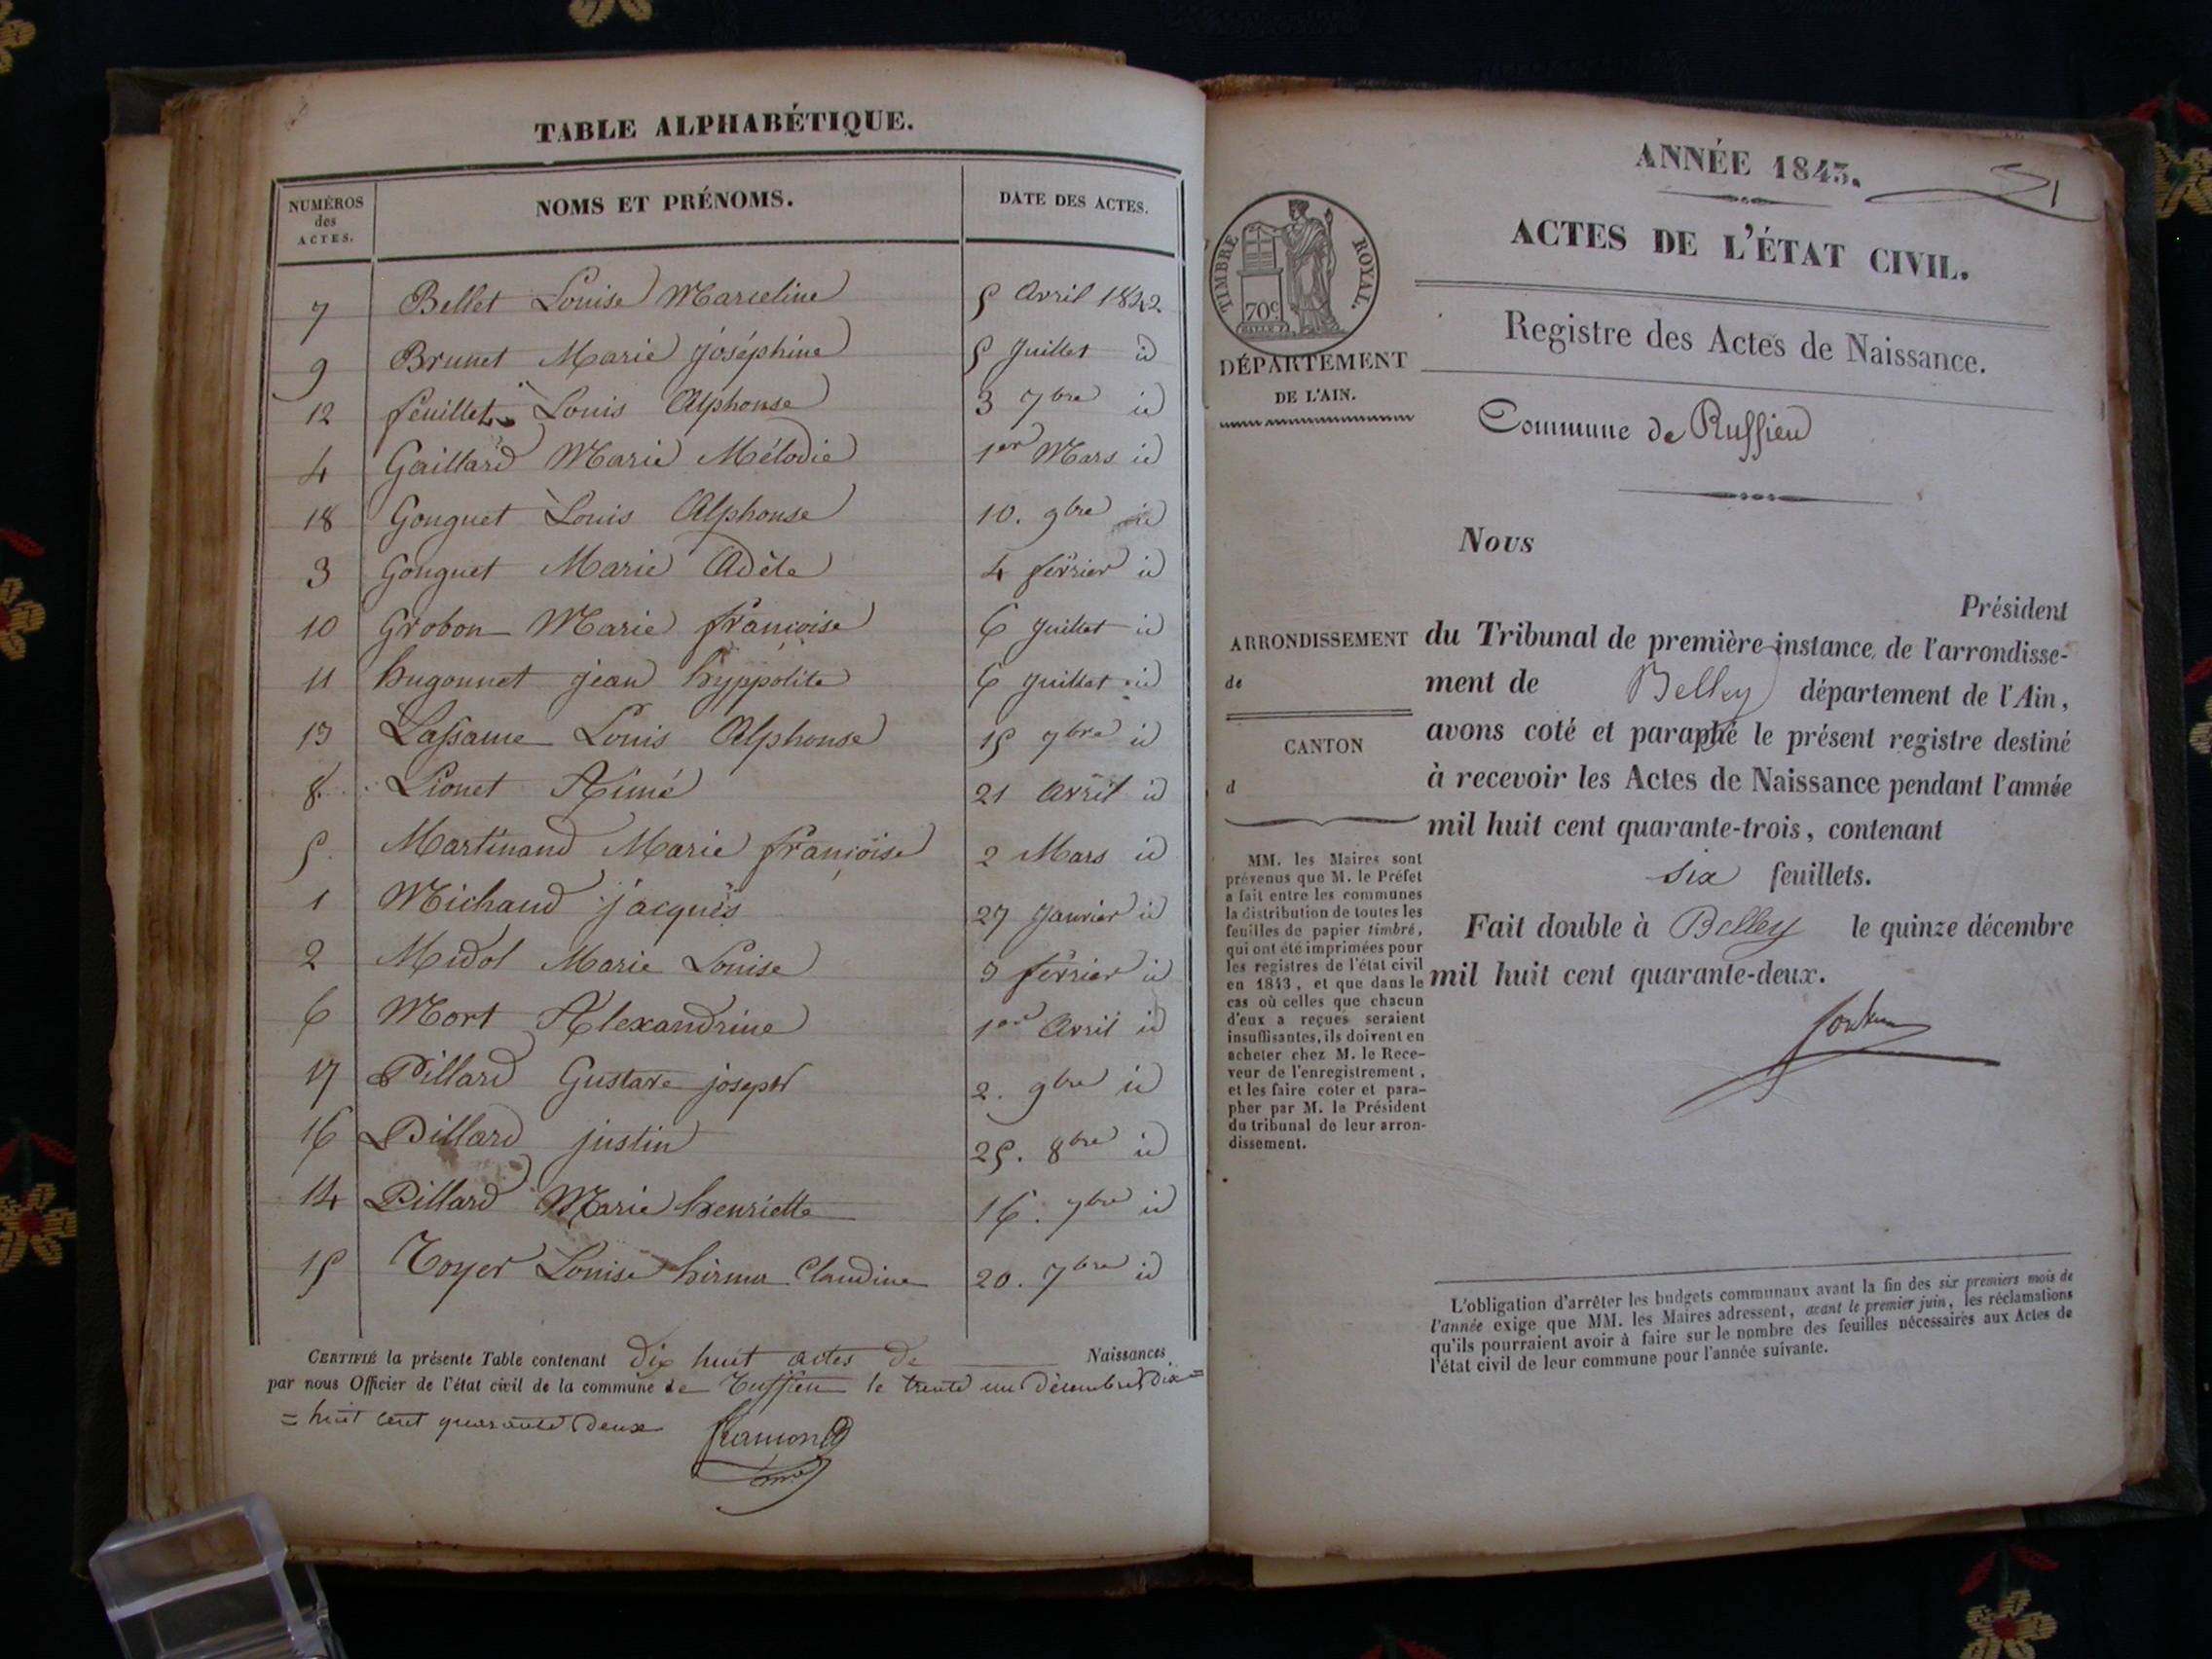 TABLE ALPHABÉTIQUE.
NUMÉROS des ACTES.
NOMS ET PRÉNOMS.
DATE DES ACTES.
7 Bellet Louise Marceline 5 Avril 1842
9 Brunet Marie joséphine 5 Juillet id
12 feuillet Louis Alphonse 3 7bre id
4 Gaillard Marie Mélodie 1er Mars id
18 Gonguet Louis Alphonse 10. 9bre id
3 Gonguet Marie Adèle 4 février id
10 Grobon Marie françoise 6 Juillet id
11 hugonnet jean hyppolite 6 Juillet id
13 Lassame Louis Alphonse 15 7bre id
8. Lionet Aimé 21 Avril id
5. Martinand Marie françoise 2 Mars id
1 Michaud jacques 27 Janvier id
2 Midol Marie Louise 3 février id
6 Mort Alexandrine 1er Avril id
17 Pillard Gustave joseph 2. 9bre id
16 Pillard justin 25. 8bre id
14 Pillard Marie henriette 16. 7bre id
15 Toyer Louise hirma Claudine 20. 7bre id
CERTIFIÉ la présente Table contenant dix huit actes de Naissances
par nous Officier de l'état civil de la commune de Ruffieu le trente un décembre dix=
=huit cent quarante deux
ANNÉE 1843.
ACTES DE L'ÉTAT CIVIL.
TIMBRE ROYAL.
70c
DÉPARTEMENT
DE L'AIN.
Registre des Actes de Naissance.
Commune de Ruffieu
Nous
Président
ARRONDISSEMENT
de
CANTON
d
du Tribunal de première instance de l'arrondisse-
ment de Belley département de l'Ain,
avons coté et paraphé le présent registre destiné
à recevoir les Actes de Naissance pendant l'année
mil huit cent quarante-trois, contenant
six feuillets.
Fait double à Belley le quinze décembre
mil huit cent quarante-deux.
MM. les Maires sont
prévenus que M. le Préfet
a fait entre les communes
la distribution de toutes les
feuilles de papier timbré,
qui ont été imprimées pour
les registres de l'état civil
en 1843, et que dans le
cas où celles que chacun
d'eux a reçues seraient
insuffisantes, ils doivent en
acheter chez M. le Rece-
veur de l'enregistrement,
et les faire coter et para-
pher par M. le Président
du tribunal de leur arron-
dissement.
L'obligation d'arrêter les budgets communaux avant la fin des six premiers mois de
l'année exige que MM. les Maires adressent, avant le premier juin, les réclamations
qu'ils pourraient avoir à faire sur le nombre des feuilles nécessaires aux Actes de
l'état civil de leur commune pour l'année suivante.